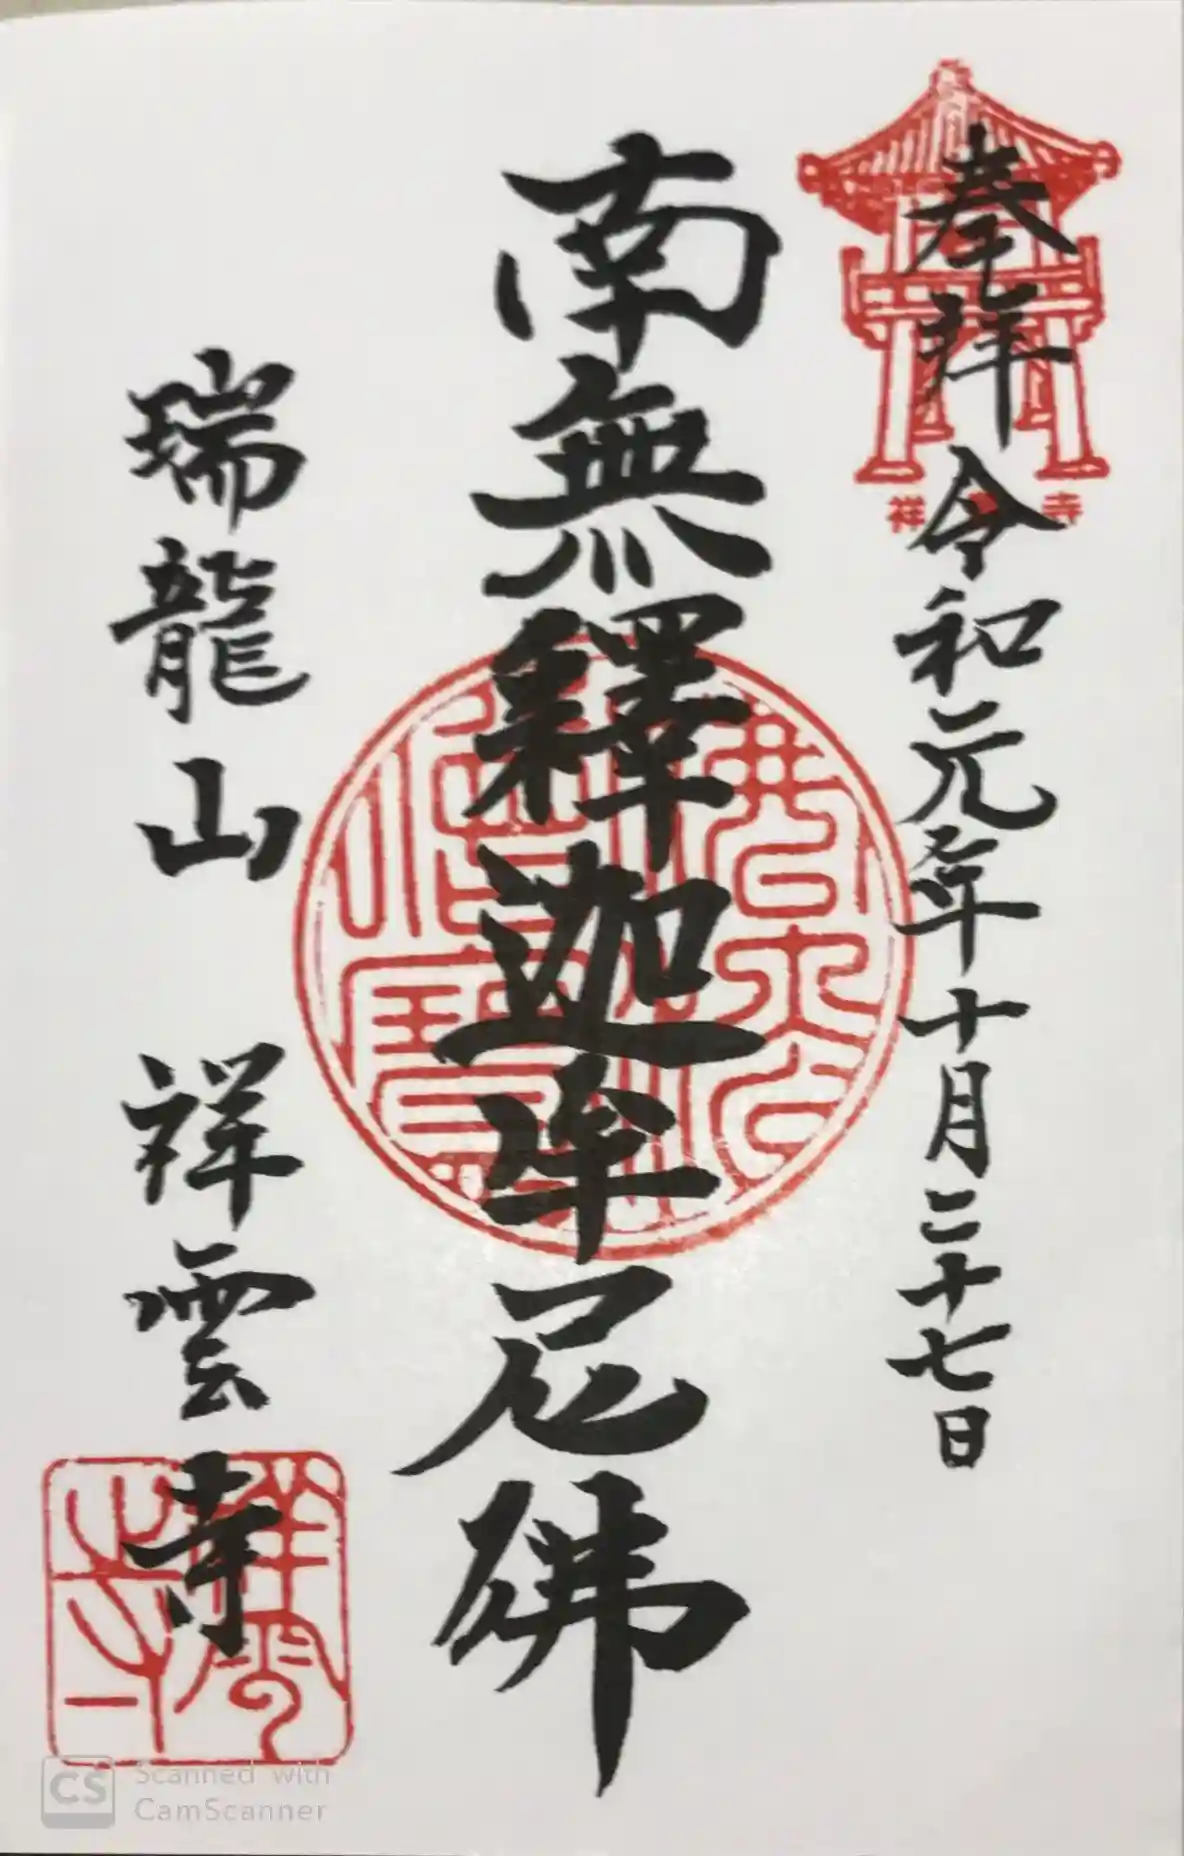 奉拜 令和元年十月二十七日
祥雲寺
南無釋迦牟尼佛
瑞龍山 祥雲寺
祥雲寺
CS Scanned with
CamScanner